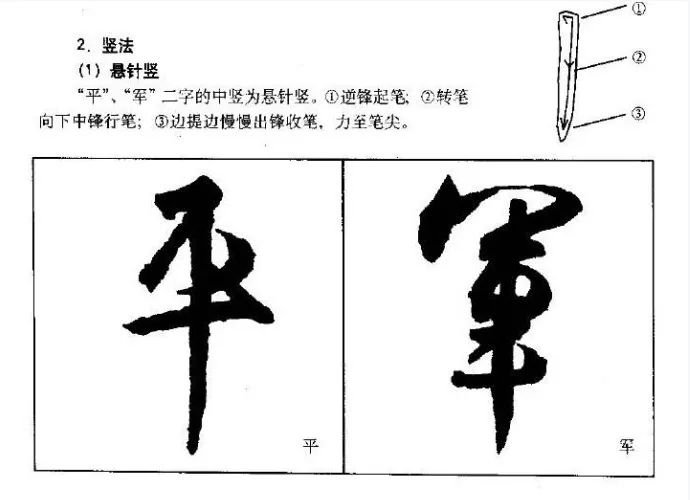 2. 竖法
(1) 悬针竖
“平”、“军” 二字的中竖为悬针竖。①逆锋起笔; ②转笔
向下中锋行笔; ③边提边慢慢出锋收笔, 力至笔尖。
①
②
③
平
軍
平
军